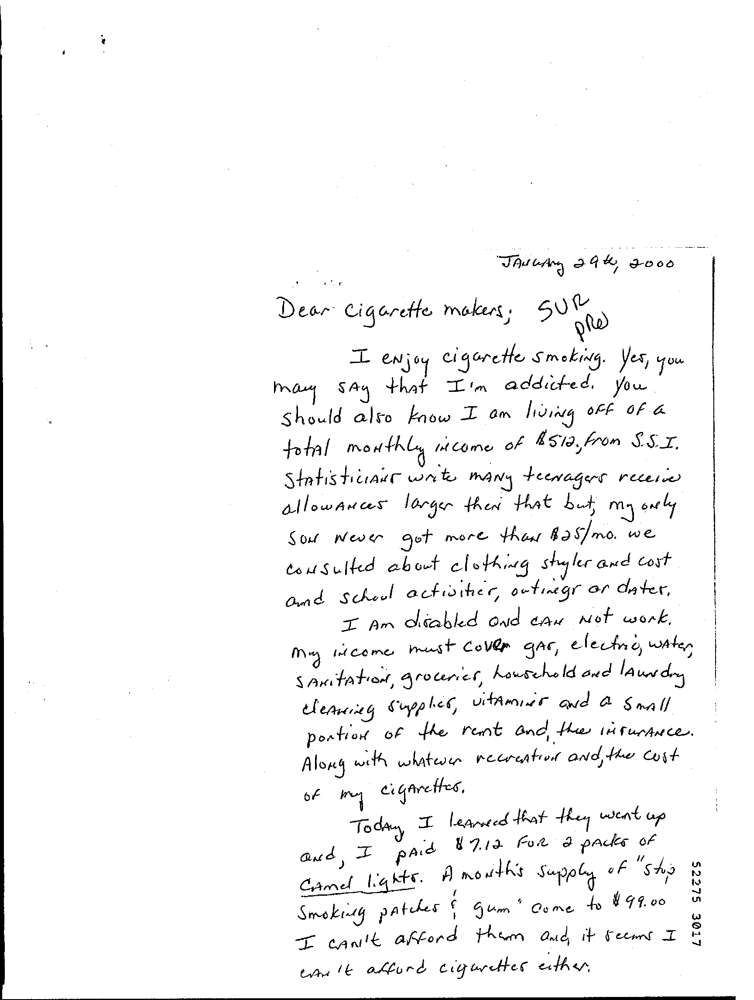 January 29th, 2000
Dear cigarette makers; SUR
pRe
I enjoy cigarette smoking. Yes, you
may say that I'm addicted. You
should also know I am living off of a
total monthly income of $512, from S.S.I.
Statisticians write many teenagers receive
allowances larger then that but, my only
son never got more than $25/mo. we
consulted about clothing styles and cost
and school activities, outings or dates.
I am disabled and can not work.
My income must cover gas, electric, water,
sanitation, groceries, household and laundry
cleaning supplies, vitamins and a small
portion of the rent and, the insurance.
Along with whatever recreation and, the cost
of my cigarettes.
Today, I learned that they went up
and, I paid $7.12 for 2 packs of
Camel lights. A month's supply of "stop
smoking patches & gum" come to $99.00
I can't afford them and, it seems I
can't afford cigarettes either.
52275 3017